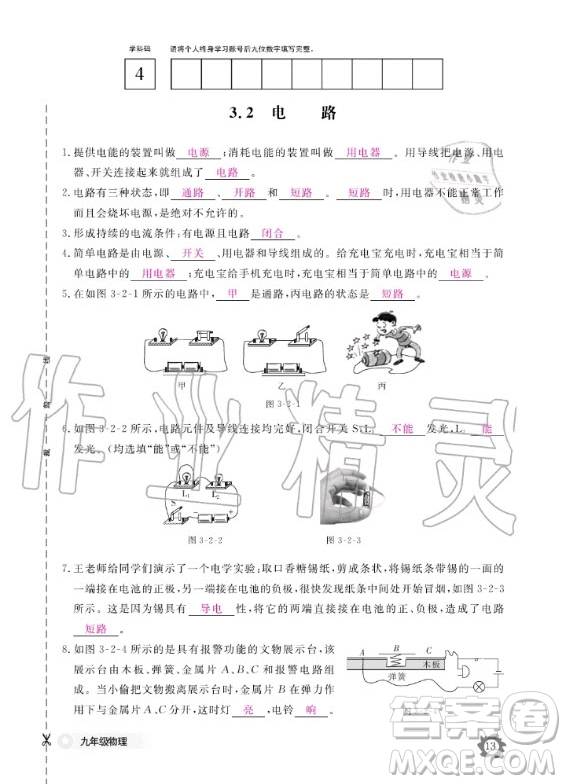 学科码 请将个人终身学习账号后九位数字填写完整。
4
3.2 电 路
1. 提供电能的装置叫做 电源 ;消耗电能的装置叫做 用电器 。用导线把电源、用电
器、开关连接起来就组成了 电路 。
2. 电路有三种状态,即 通路 、 开路 和 短路 。 短路 时,用电器不能正常工作
而且会烧坏电源,是绝不允许的。
3. 形成持续的电流条件:有电源且电路 闭合 。
4. 简单电路是由电源、 开关 、用电器和导线组成的。给充电宝充电时,充电宝相当于简
单电路中的 用电器 ;充电宝给手机充电时,充电宝相当于简单电路中的 电源 。
5. 在如图3-2-1所示的电路中, 甲 是通路,丙电路的状态是 短路 。
甲 乙 丙
图3-2-1
6. 如图3-2-2所示,电路元件及导线连接均完好,闭合开关S,L₁ 不能 发光,L₂ 能
发光。(均选填“能”或“不能”)
L₁ L₂
S
图3-2-2 图3-2-3
7. 王老师给同学们演示了一个电学实验:取口香糖锡纸,剪成条状,将锡纸条带锡的一面的
一端接在电池的正极,另一端接在电池的负极,发现锡纸条很快就冒烟,如图3-2-3
所示。这是因为锡具有 导电 性,锡将电池的两端直接接在一起,发生了电路
短路 。
8. 如图3-2-4所示的是具有报警功能的文物展示台,该
展示台由木板、弹簧、金属片A、B、C和导线等组成。
当小偷把文物搬离展示台时,弹簧将木板弹起,从而使
金属片A、C分开,这时灯 亮 ,电铃 响 。
A B C
木板
弹簧
九年级物理
13
作业精灵
答案圈